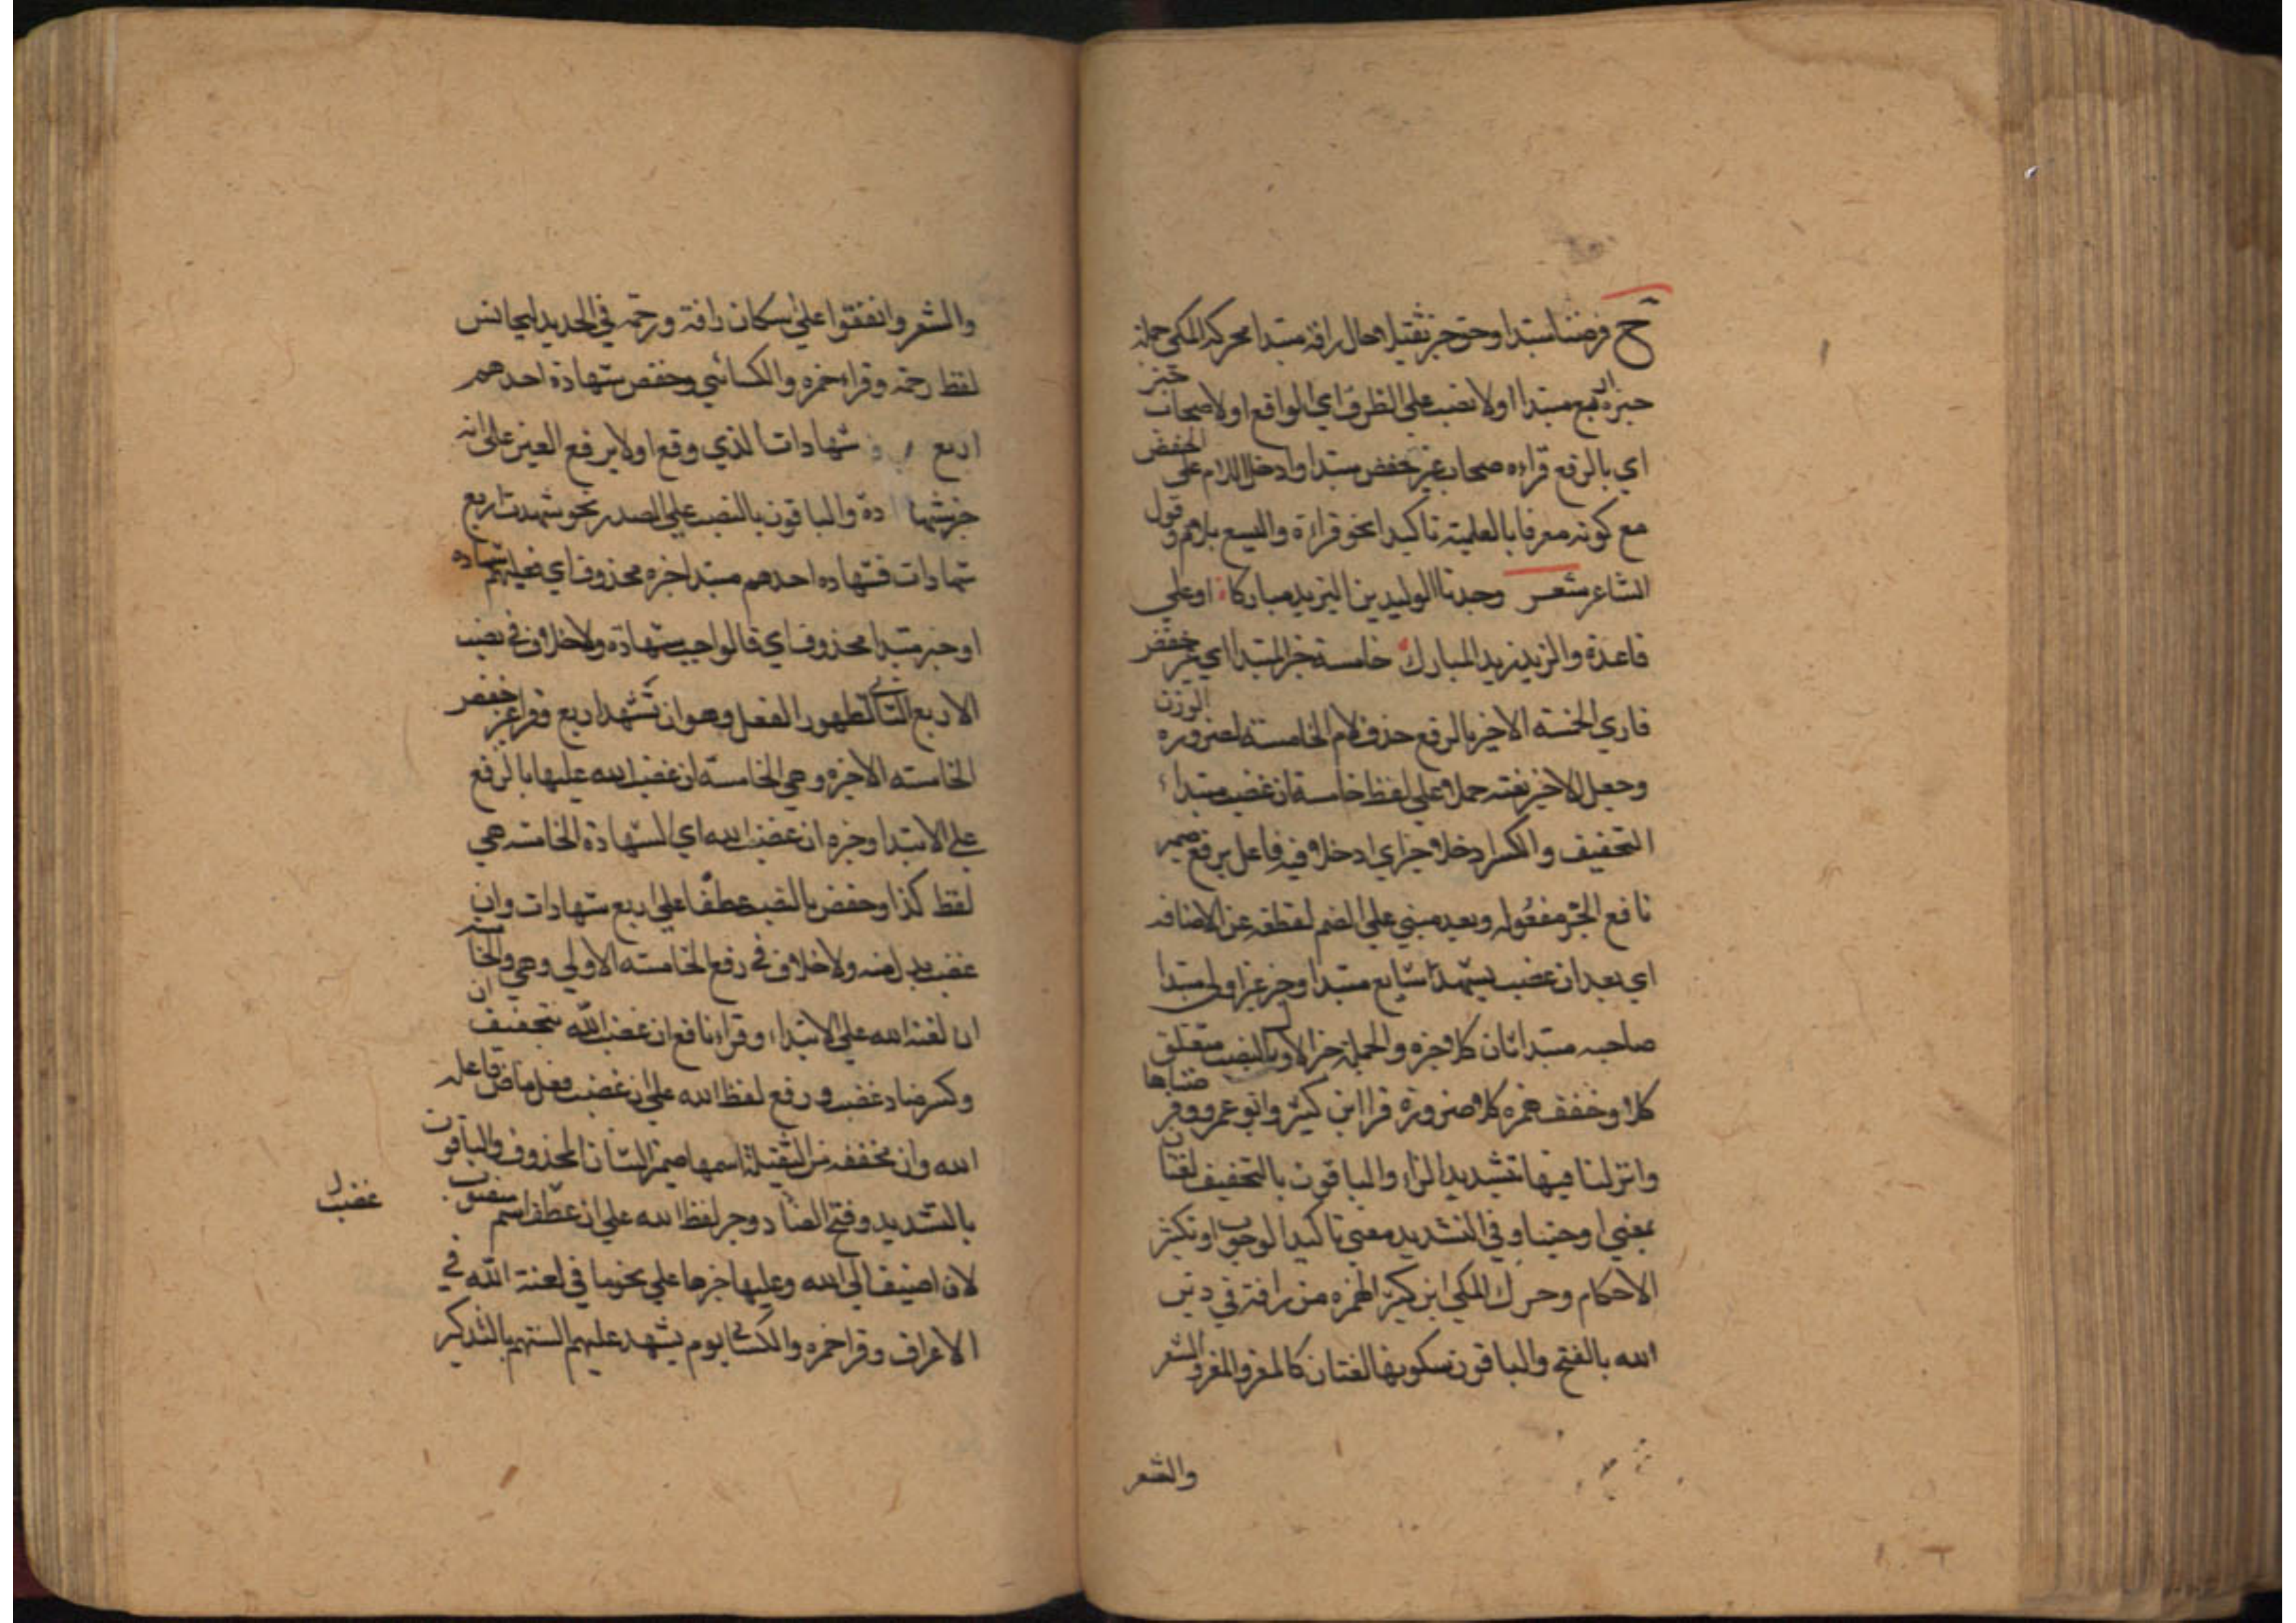 ح فرضنا مبتدا وحق خبر ثقيلا حال رافة مبتدا محركه المكي جملة
خبره اربع مبتدا اولا نصب علي الظرف اي الواقع اولا صحاب خبر
اي بالرفع قراءه صحاب غير حفص مبتدا وادخل اللام على الحفص
مع كونه معرفا بالعلمية تاكيدا نحو قراءة واليسع بلام وقول
الشاعر شعر وجدنا الوليد بن اليزيد مباركا اوعلي
قاعدة والزيد زيد المبارك خامسة خبر المبتدا اي غير حفص
قاري الخمسة الاخير بالرفع حذف لام الخامسة لضرورة الوزن
وجعل الاخير نعته حملا علي لفظ خامسة ان غضب مبتداء
التخفيف والكسر ادخلا خبر اي ادخلا فيه فاعل يرفع ضمير
نافع الجر مفعوله وبعد مبني علي الضم لقطعه عن الاضافه
اي بعد ان غضب يشهد شايع مبتدا وخبر غير اولي مبتدا
صاحبه مبتدا ثان كلا خبره والجملة خبر الاول بالنصب متعلق
كلا وخفف همزه كلا ضرورة قرا ابن كثير وابو عمرو وفرضناها
وانزلنا فيها بتشديد الراء والباقون بالتخفيف لغتان
بمعني اوجبنا وفي التشديد معني تاكيد الوجوب او تكثير
الاحكام وحرك المكي ابن كثير الهمزه من رافة في دين
الله بالفتح والباقون بسكونها لغتان كالمعز والمعز والشعر
والشعر
والشعر واتفقوا علي اسكان رافة ورحمة في الحديد ليجانس
لفظ رحمة وقراء حمزه والكسائي وحفص شهادة احدهم
اربع شهادات الذي وقع اولا برفع العين على انه
خبر شهادة والباقون بالنصب علي المصدر نحو شهدت اربع
شهادات فشهاده احدهم مبتدا خبره محذوف اي فعليهم شهاده
او خبر مبتدا محذوف اي فالواجب شهادة ولا خلاف في نصب
الاربع الثاني لظهور الفعل وهو ان تشهد اربع وقرا غير حفص
الخامسه الاخيره وهي الخامسة ان غضب الله عليها بالرفع
علي الابتدا وخبره ان غضب الله اي الشهادة الخامسه هي
لفظ كذا وحفص بالنصب عطفا علي اربع شهادات وان
غضب بدل منه ولا خلاف في رفع الخامسه الاولي وهي والخامسة
ان لعنة الله علي الابتداء وقراء نافع ان غضب الله بتخفيف ان
وكسر ضاد غضب ورفع لفظ الله علي ان غضب فعل ماض فاعله
الله وان مخففه من الثقيلة اسمها ضمير الشان المحذوف والباقون
بالتشديد وفتح الضاد وجر لفظ الله علي ان غضب اسم منصوب
غضب
لان اضيف الي الله وعليها خبرها علي نحو ما في لعنة الله في
الاعراف وقرا حمزه والكسائي يوم يشهد عليهم السنتهم بالتذكير